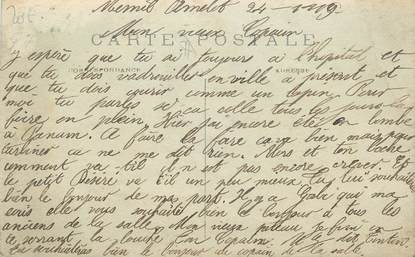 Mesnil Amelot 24
Mon vieux Copain
CARTE POSTALE
J'espère que tu es toujours à l'hopital et
CORRESPONDANCE ADRESSE
que tu dois vadrouiller en ville à présent et
que tu dois courir comme un lapin. Pour
moi tu parles si ça colle tous les jours la
foire en plein. Hier j'ai encore été en bombe
à Faire la foire ça va bien mais pour
turbiner ça ne me dit rien. Alors et ton
comment va-t-il il n'est pas encore crevé. Et
le petit Désiré va t'il un peu mieux tu lui souhaiteras
bien le bonjour de ma part. Il y a Gaby que ma
elle vous souhaite bien le bonjour à tous les
anciens de la salle. Mon vieux poteau je finis en
te serrant la louche Ton Copain
Tu souhaiteras bien le bonjour au copain de la salle